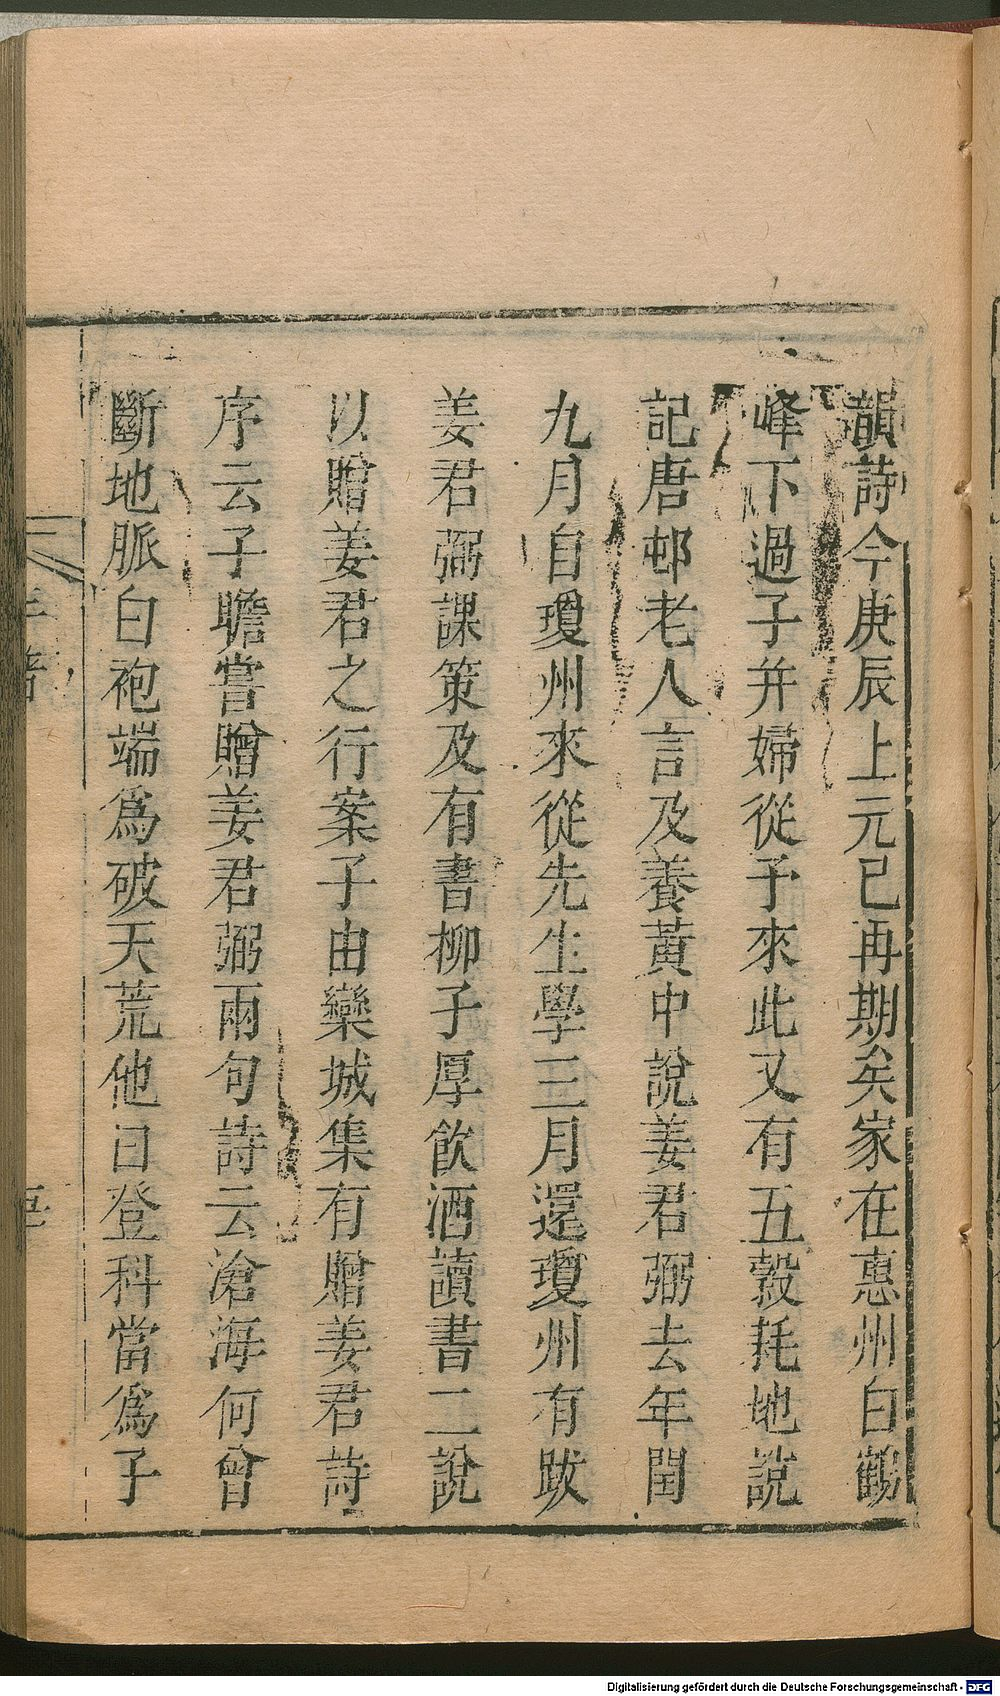 韻詩今庚辰上元已再期矣家在惠州白鶴
峰下過子并婦從予來此又有五穀耗地說
記唐邨老人言及養黃中說姜君弼去年閏
九月自瓊州來從先生學三月還瓊州有跋
姜君弼課策及有書柳子厚飲酒讀書二說
以贈姜君之行案子由欒城集有贈姜君詩
序云子瞻嘗贈姜君弼兩句詩云滄海何曾
斷地脈白袍端爲破天荒他日登科當爲子
Digitalisierung gefördert durch die Deutsche Forschungsgemeinschaft - DFG